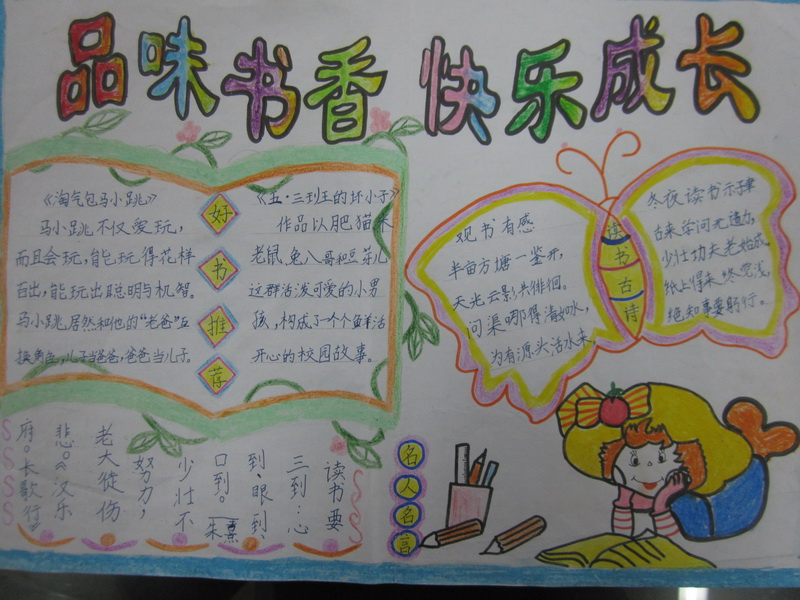 品味书香 快乐成长
《淘气包马小跳》
马小跳不仅爱玩，
而且会玩，能玩得花样
百出，能玩出聪明与机智。
马小跳居然和他的“老爸”互
换角色，儿子当爸爸，爸爸当儿子。
好书推荐
《五·三班的坏小子》
作品以肥猫、米
老鼠、兔八哥和豆芽儿
这群活泼可爱的小男
孩，构成了一个个鲜活
开心的校园故事。
观书有感
半亩方塘一鉴开，
天光云影共徘徊。
问渠哪得清如水，
为有源头活水来。
读书古诗
冬夜读书示子聿
古人学问无遗力，
少壮功夫老始成。
纸上得来终觉浅，
绝知事要躬行。
名人名言
读书要
三到：心
到、眼到、
口到。朱熹
少壮不
努力，
老大徒伤
悲。《汉乐
府。长歌行》